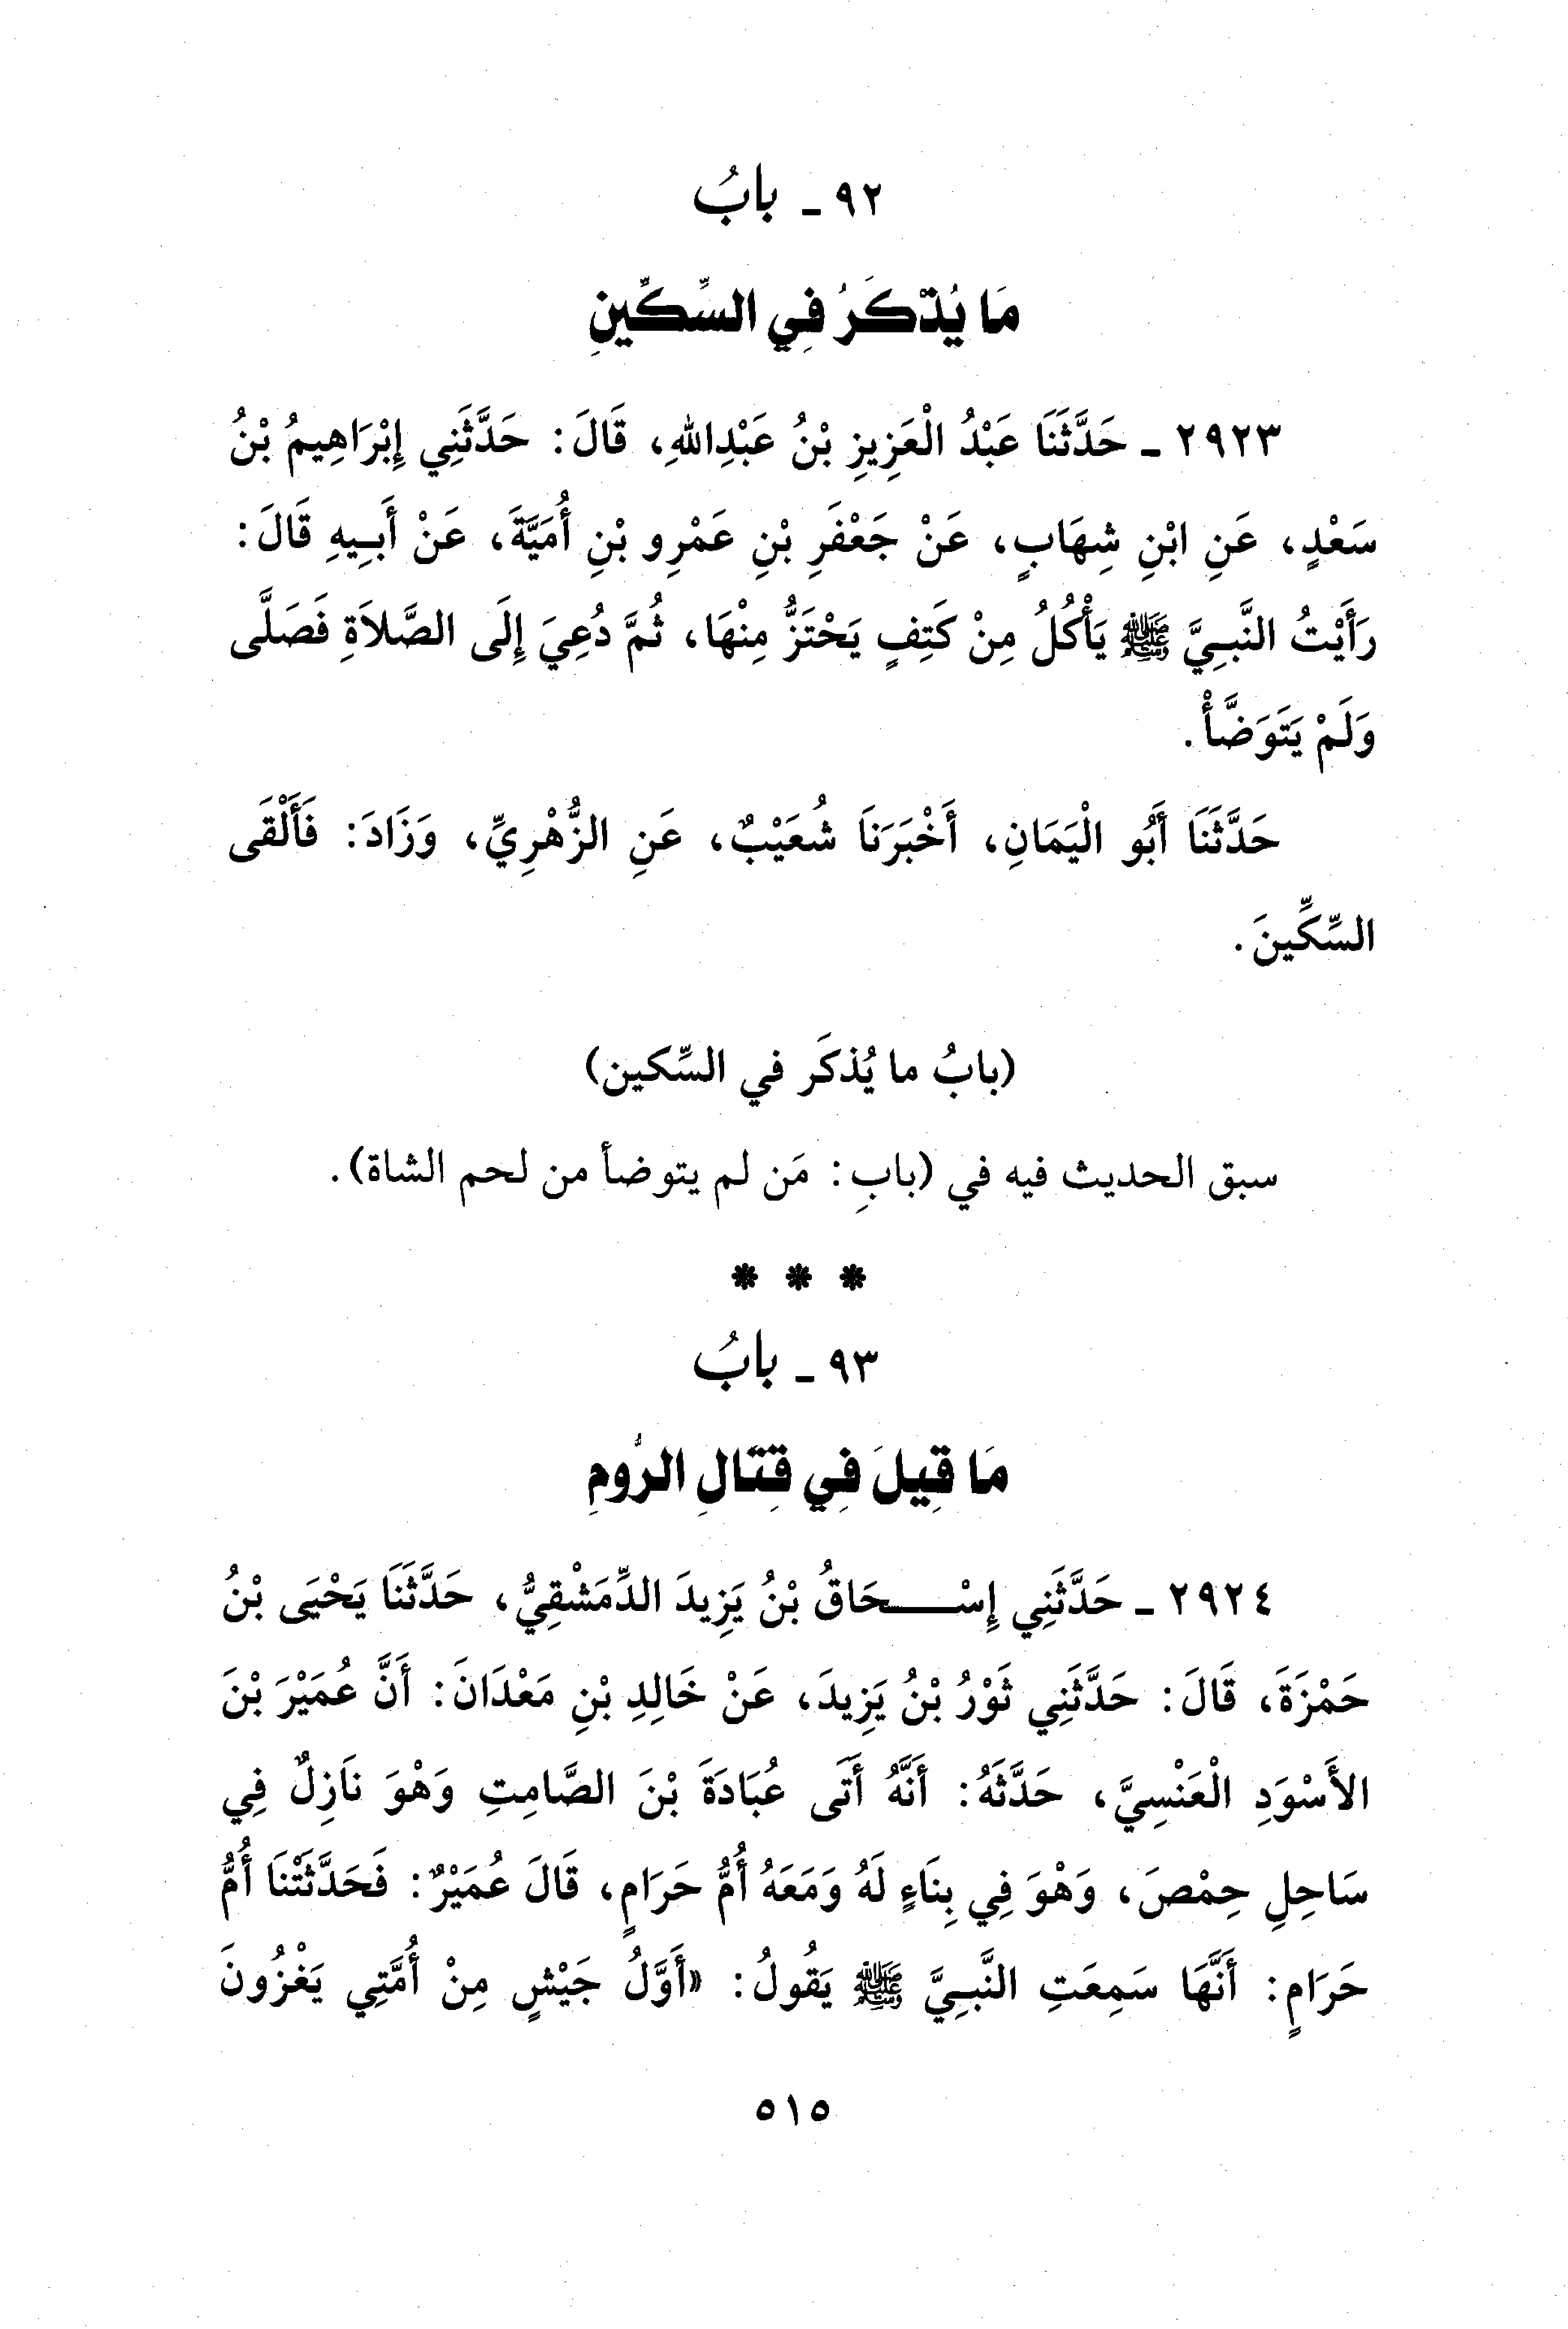 ٩٢ - بابُ
مَا يُذْكَرُ فِي السِّكِّينِ
٢٩٢٣ - حَدَّثَنَا عَبْدُ الْعَزِيزِ بْنُ عَبْدِاللهِ، قَالَ: حَدَّثَنِي إِبْرَاهِيمُ بْنُ
سَعْدٍ، عَنِ ابْنِ شِهَابٍ، عَنْ جَعْفَرِ بْنِ عَمْرِو بْنِ أُمَيَّةَ، عَنْ أَبِيهِ قَالَ:
رَأَيْتُ النَّبِيَّ ﷺ يَأْكُلُ مِنْ كَتِفٍ يَحْتَزُّ مِنْهَا، ثُمَّ دُعِيَ إِلَى الصَّلاَةِ فَصَلَّى
وَلَمْ يَتَوَضَّأْ.
حَدَّثَنَا أَبُو الْيَمَانِ، أَخْبَرَنَا شُعَيْبٌ، عَنِ الزُّهْرِيِّ، وَزَادَ: فَأَلْقَى
السِّكِّينَ.
(بابُ ما يُذكَر في السِّكين)
سبق الحديث فيه في (بابِ: مَن لم يتوضأ من لحم الشاة).
* * *
٩٣ - بابُ
مَا قِيلَ فِي قِتَالِ الرُّومِ
٢٩٢٤ - حَدَّثَنِي إِسْحَاقُ بْنُ يَزِيدَ الدِّمَشْقِيُّ، حَدَّثَنَا يَحْيَى بْنُ
حَمْزَةَ، قَالَ: حَدَّثَنِي ثَوْرُ بْنُ يَزِيدَ، عَنْ خَالِدِ بْنِ مَعْدَانَ: أَنَّ عُمَيْرَ بْنَ
الأَسْوَدِ الْعَنْسِيَّ، حَدَّثَهُ: أَنَّهُ أَتَى عُبَادَةَ بْنَ الصَّامِتِ وَهْوَ نَازِلٌ فِي
سَاحِلِ حِمْصَ، وَهْوَ فِي بِنَاءٍ لَهُ وَمَعَهُ أُمُّ حَرَامٍ، قَالَ عُمَيْرٌ: فَحَدَّثَتْنَا أُمُّ
حَرَامٍ: أَنَّهَا سَمِعَتِ النَّبِيَّ ﷺ يَقُولُ: «أَوَّلُ جَيْشٍ مِنْ أُمَّتِي يَغْزُونَ
٥١٥